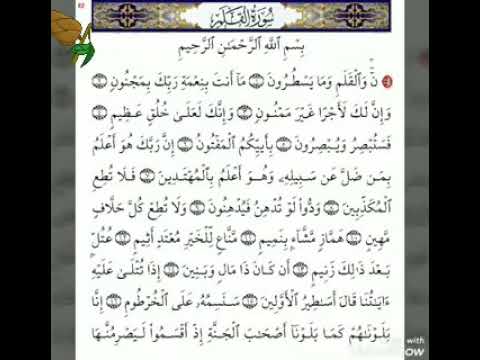 ٥٦٤
سُورَةُ الْقَلَمِ
بِسْمِ اللَّهِ الرَّحْمَٰنِ الرَّحِيمِ
نٓ ۚ وَالْقَلَمِ وَمَا يَسْطُرُونَ ١ مَا أَنتَ بِنِعْمَةِ رَبِّكَ بِمَجْنُونٍ ٢
وَإِنَّ لَكَ لَأَجْرًا غَيْرَ مَمْنُونٍ ٣ وَإِنَّكَ لَعَلَىٰ خُلُقٍ عَظِيمٍ ٤
فَسَتُبْصِرُ وَيُبْصِرُونَ ٥ بِأَييِّكُمُ الْمَفْتُونُ ٦ إِنَّ رَبَّكَ هُوَ أَعْلَمُ
بِمَن ضَلَّ عَن سَبِيلِهِۦ وَهُوَ أَعْلَمُ بِالْمُهْتَدِينَ ٧ فَلَا تُطِعِ
الْمُكَذِّبِينَ ٨ وَدُّوا لَوْ تُدْهِنُ فَيُدْهِنُونَ ٩ وَلَا تُطِعْ كُلَّ حَلَّافٍ
مَّهِينٍ ١٠ هَمَّازٍ مَّشَّاءٍ بِنَمِيمٍ ١١ مَّنَّاعٍ لِّلْخَيْرِ مُعْتَدٍ أَثِيمٍ ١٢ عُتُلٍّ
بَعْدَ ذَٰلِكَ زَنِيمٍ ١٣ أَن كَانَ ذَا مَالٍ وَبَنِينَ ١٤ إِذَا تُتْلَىٰ عَلَيْهِ
ءَايَٰتُنَا قَالَ أَسَٰطِيرُ الْأَوَّلِينَ ١٥ سَنَسِمُهُۥ عَلَى الْخُرْطُومِ ١٦ إِنَّا
بَلَوْنَٰهُمْ كَمَا بَلَوْنَا أَصْحَٰبَ الْجَنَّةِ إِذْ أَقْسَمُوا لَيَصْرِمُنَّهَا
with